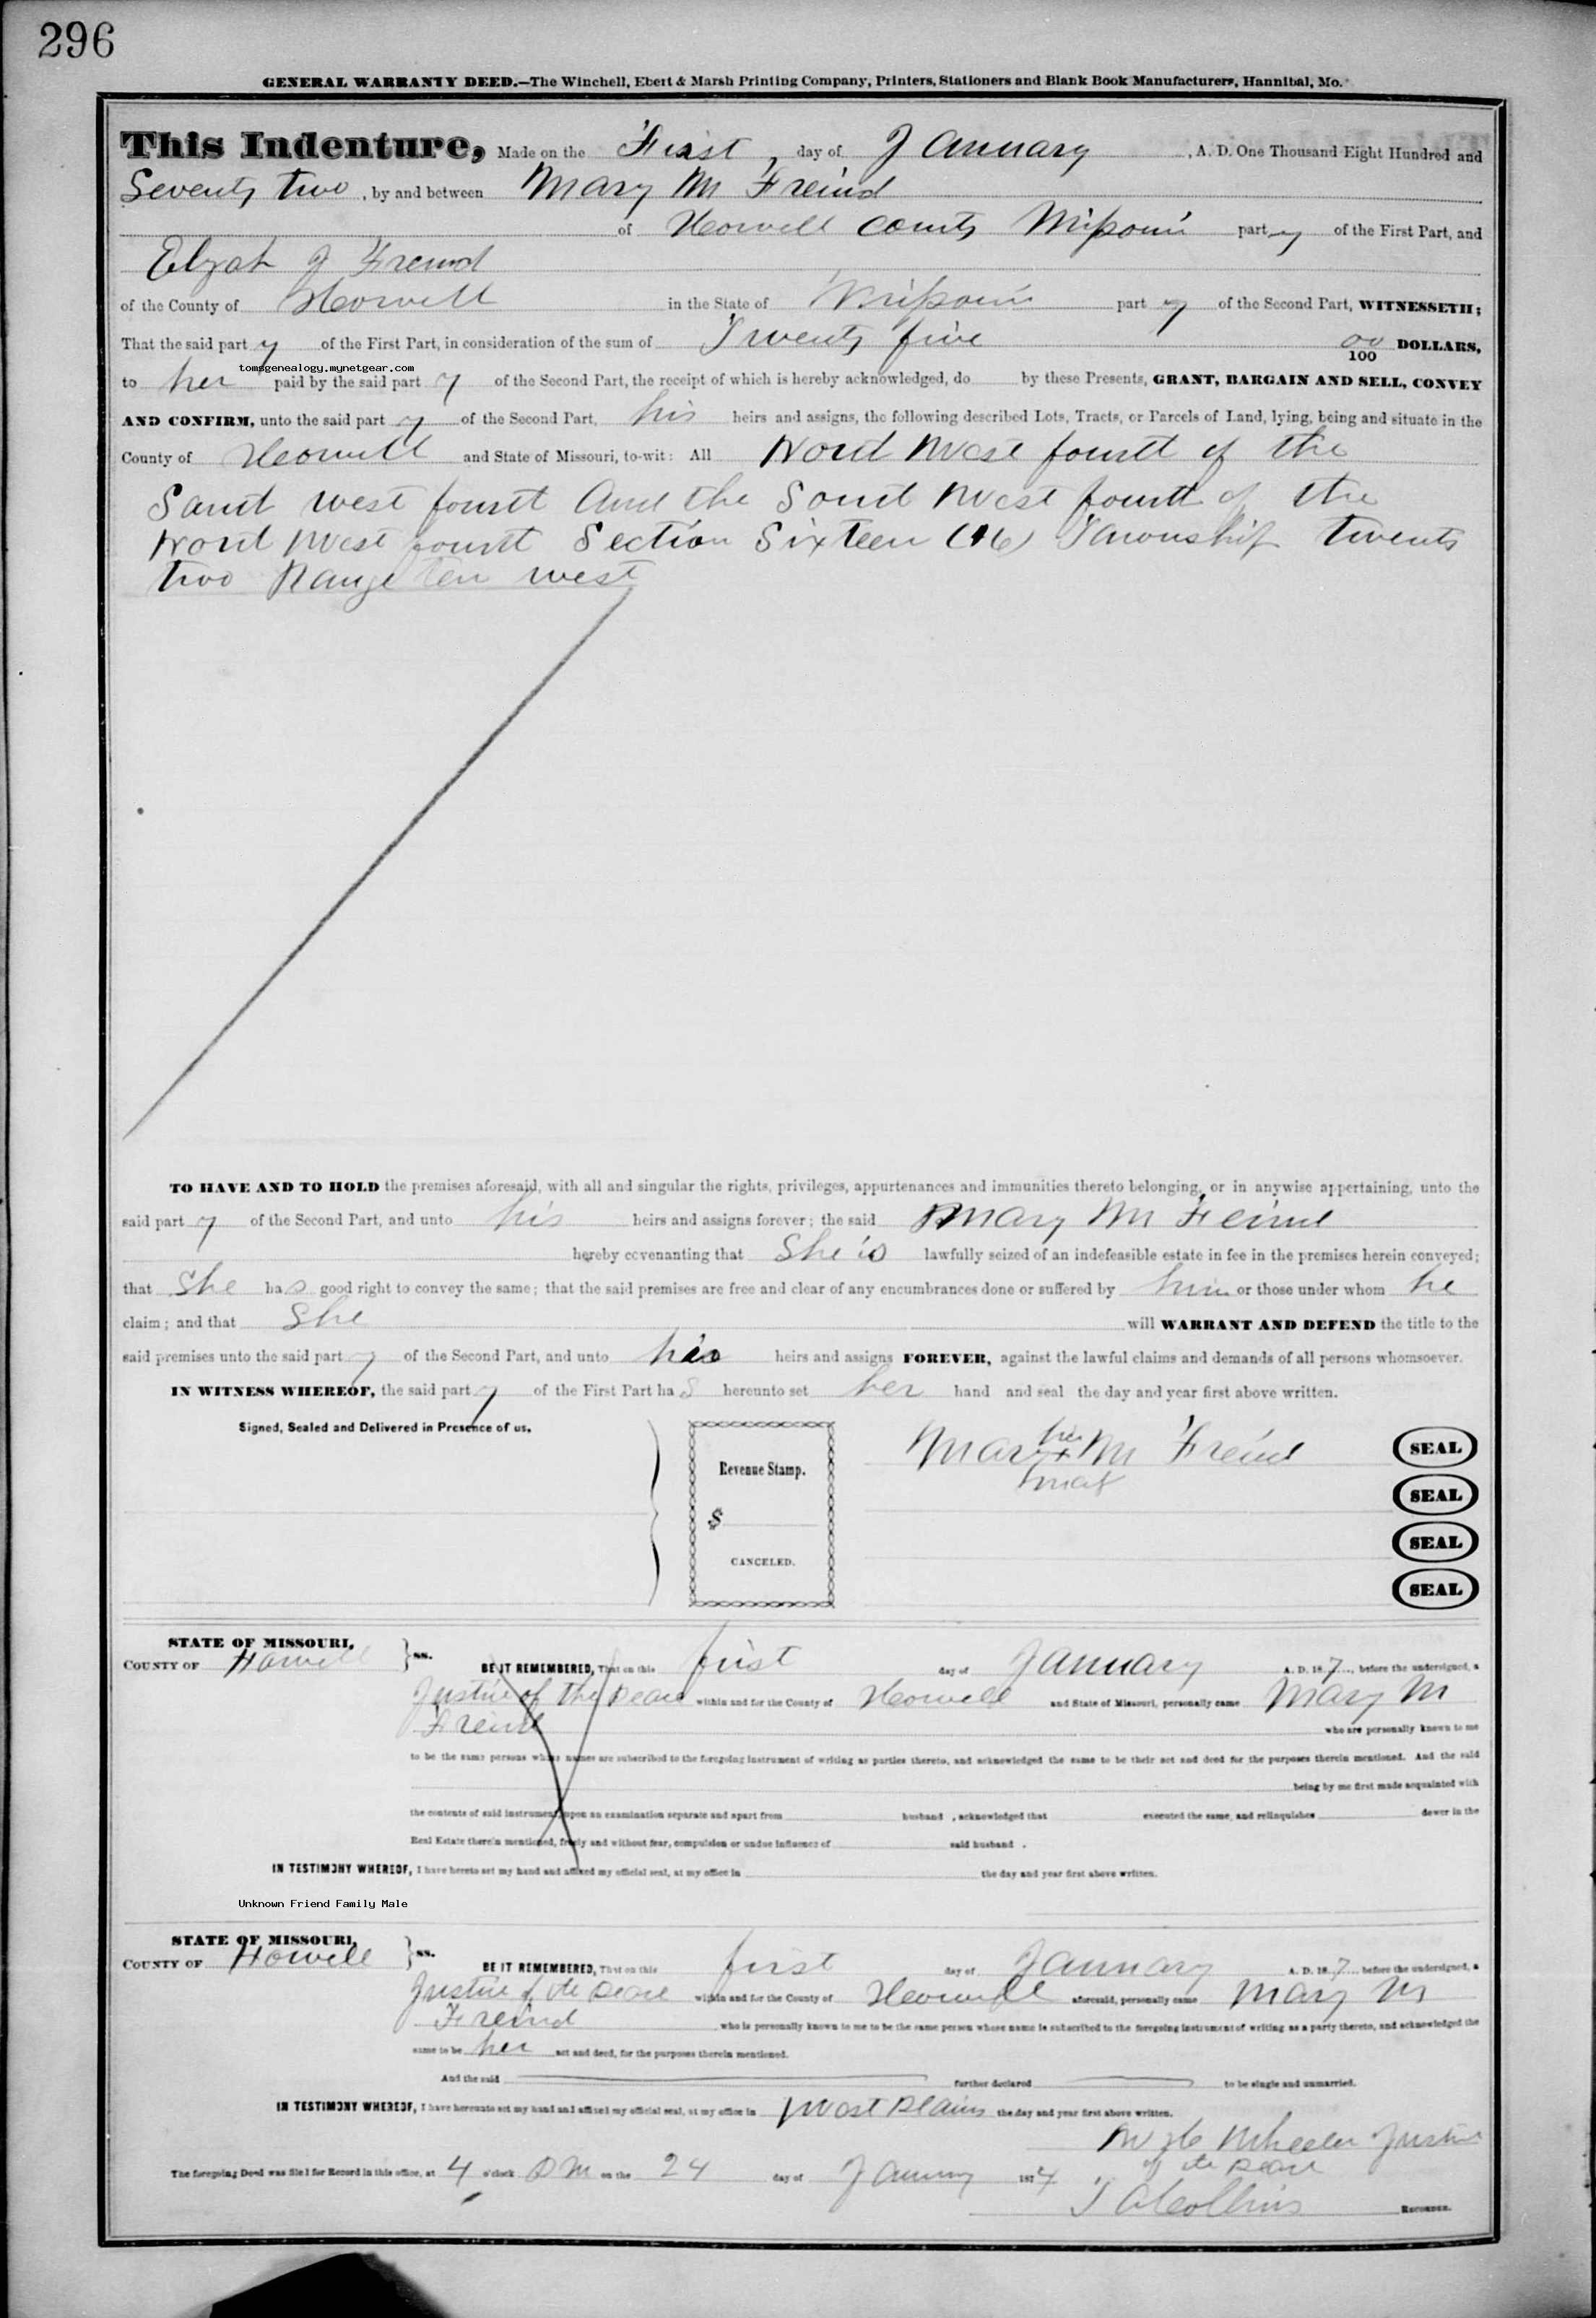 296
GENERAL WARRANTY DEED.—The Winchell, Ebert & Marsh Printing Company, Printers, Stationers and Blank Book Manufacturers, Hannibal, Mo.
This Indenture, Made on the First day of January, A. D. One Thousand Eight Hundred and
Seventy two, by and between Mary M Freind
of Howell County Missouri party of the First Part, and
Elzah J Freind
of the County of Howell in the State of Missouri party of the Second Part, WITNESSETH;
That the said party of the First Part, in consideration of the sum of Twenty five 00/100 DOLLARS,
tomsgenealogy.mynetgear.com
to her paid by the said party of the Second Part, the receipt of which is hereby acknowledged, do by these Presents, GRANT, BARGAIN AND SELL, CONVEY
AND CONFIRM, unto the said party of the Second Part, his heirs and assigns, the following described Lots, Tracts, or Parcels of Land, lying, being and situate in the
County of Howell and State of Missouri, to-wit: All North West fourth of the
South west fourth And the South West fourth of the
North West fourth Section Sixteen (16) Township twenty
two Range ten west
TO HAVE AND TO HOLD the premises aforesaid, with all and singular the rights, privileges, appurtenances and immunities thereto belonging, or in anywise appertaining, unto the
said party of the Second Part, and unto his heirs and assigns forever; the said Mary M Feind
hereby covenanting that She is lawfully seized of an indefeasible estate in fee in the premises herein conveyed;
that She has good right to convey the same; that the said premises are free and clear of any encumbrances done or suffered by him or those under whom he
claim; and that She will WARRANT AND DEFEND the title to the
said premises unto the said party of the Second Part, and unto his heirs and assigns FOREVER, against the lawful claims and demands of all persons whomsoever.
IN WITNESS WHEREOF, the said party of the First Part has hereunto set her hand and seal the day and year first above written.
Signed, Sealed and Delivered in Presence of us.
her
Mary + M Freind SEAL
mark
Revenue Stamp.
SEAL
$
SEAL
CANCELED.
SEAL
STATE OF MISSOURI,
COUNTY OF Howell ss. BE IT REMEMBERED, That on this first day of January A. D. 187, before the undersigned, a
Justice of the Peace within and for the County of Howell and State of Missouri, personally came Mary M
Freind who are personally known to me
to be the same persons whose names are subscribed to the foregoing instrument of writing as parties thereto, and acknowledged the same to be their act and deed for the purposes therein mentioned. And the said
being by me first made acquainted with
the contents of said instrument, upon an examination separate and apart from husband, acknowledged that executed the same, and relinquishes dower in the
Real Estate therein mentioned, freely and without fear, compulsion or undue influence of said husband.
IN TESTIMONY WHEREOF, I have hereto set my hand and affixed my official seal, at my office in the day and year first above written.
Unknown Friend Family Male
STATE OF MISSOURI,
COUNTY OF Howell ss. BE IT REMEMBERED, That on this first day of January A. D. 187, before the undersigned, a
Justice of the Peace within and for the County of Howell aforesaid, personally came Mary M
Freind who is personally known to me to be the same person whose name is subscribed to the foregoing instrument of writing as a party thereto, and acknowledged the
same to be her act and deed, for the purposes therein mentioned.
And the said further declared to be single and unmarried.
IN TESTIMONY WHEREOF, I have hereunto set my hand and affixed my official seal, at my office in West Plains the day and year first above written.
Wheeler Justice
of the Peace
The foregoing Deed was filed for Record in this office, at 4 o'clock P M on the 24 day of January 1874
Collins RECORDER.